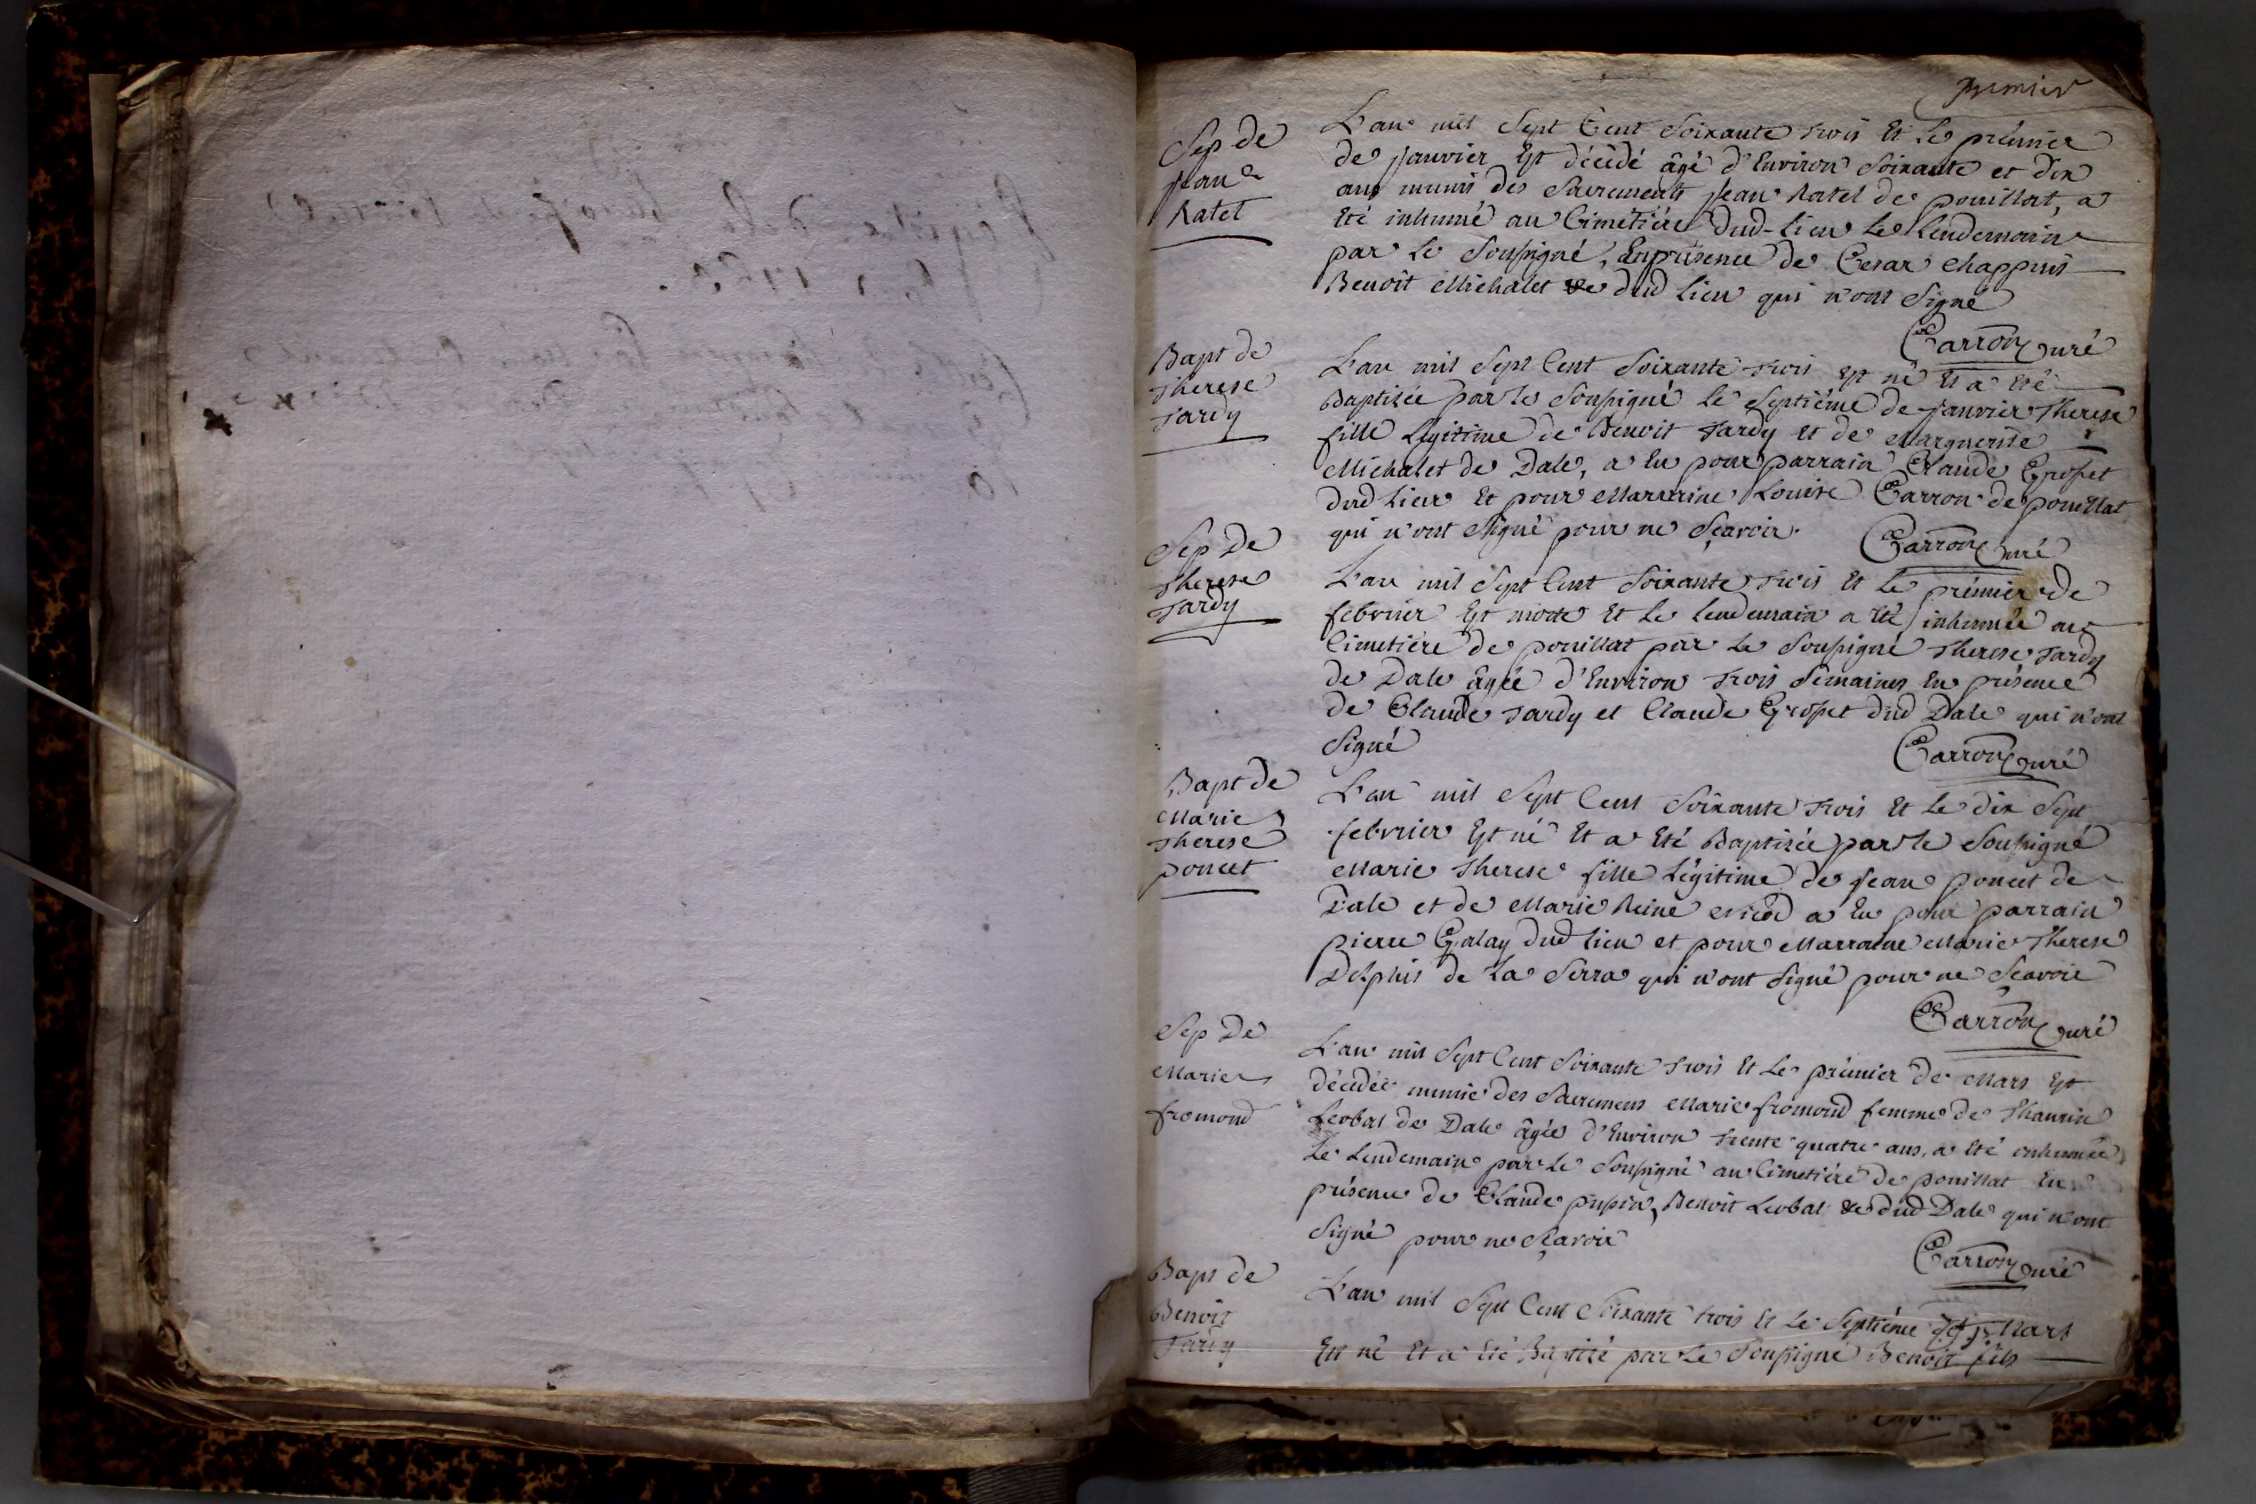 premier
Sep de
Jean
Ratet
L'an mil Sept Cent Soixante trois Et Le prémier
de Janvier Est décédé âgé d'Environ Soixante et dix
ans munis des Sacrements Jean Ratet de pouillat, a
Eté inhumé au Cimetiére dud-lieu le Lendemain
par le Soussigné, En présence de Cesar Chappuis
Benoit Michalet &c dud lieu qui n'ont Signé
Carron Curé
Bapt de
Therese
Tardy
L'an mil Sept Cent Soixante trois Est né Et a Eté
Baptisée par le Soussigné le Septiéme de Janvier Therese
fille Légitime de Benoit Tardy et de Marguerite
Michalet de Dale, a Eu pour parrain Claude Grospet
dud lieu Et pour Marraine Louise Carron de pouillat
qui n'ont Signé pour ne Sçavoir.
Carron Curé
Sep De
Therese
Tardy
L'an mil Sept Cent Soixante trois Et Le prémier de
février Est morte Et Le lendemain a Eté inhumée au
Cimetiére de pouillat par Le Soussigné Therese Tardy
de Dale âgée d'Environ trois Semaines En présence
de Claude Tardy et Claude Grospet dud Dale qui n'ont
Signé
Carron Curé
Bapt de
Marie
Therese
poncet
L'an mil Sept Cent Soixante trois Et Le dix Sept
febvrier Est né Et a Eté Baptisée par le Soussigné
Marie Therese fille Légitime de Jean poncet de
Dale et de Marie Reine a Eu pour parrain
pierre Galay dud lieu et pour Marraine Marie Therese
Delphis de La Serra qui n'ont Signé pour ne Sçavoir
Carron Curé
Sep De
Marie
fromond
L'an mil Sept Cent Soixante trois Et Le prémier de Mars Est
décédée munie des Sacremens Marie fromond femme de Thaurin
Leobal de Dale âgée d'Environ trente quatre ans, a Eté inhumée
Le Lendemain par Le Soussigné au Cimetiére de pouillat En
présence de Claude pupin, Benoit Leobal &c dud Dale qui n'ont
Signé pour ne Sçavoir
Carron Curé
Bapt de
Benoit
Tardy
L'an mil Sept Cent Soixante trois Et Le Septiéme de Mars
Est né Et a Eté Baptisé par Le Soussigné Benoit fils